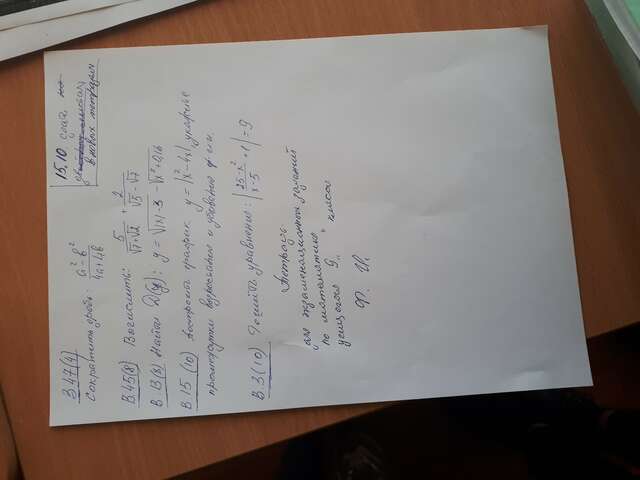 15.10 сдать
в новых тетрадях
3.47(4)
Сократить дробь: a² - b² / 4a + 4b
В.45(8) Вычислить: 5 / √7 + √2 + 2 / √5 - √7
В.13(6) Найти D(y): y = √|x| - 3 -
В.15 (10) построить график y = |x² - 6x| укажите
промежутки возрастания и убывания ф-ии.
В.3(10) Решить уравнение: | 25 - x² / x - 5 + 1 | = 9
Тетрадь
для экзаменационных заданий
по математике
учащегося 9 „ " класса
Ф. И.